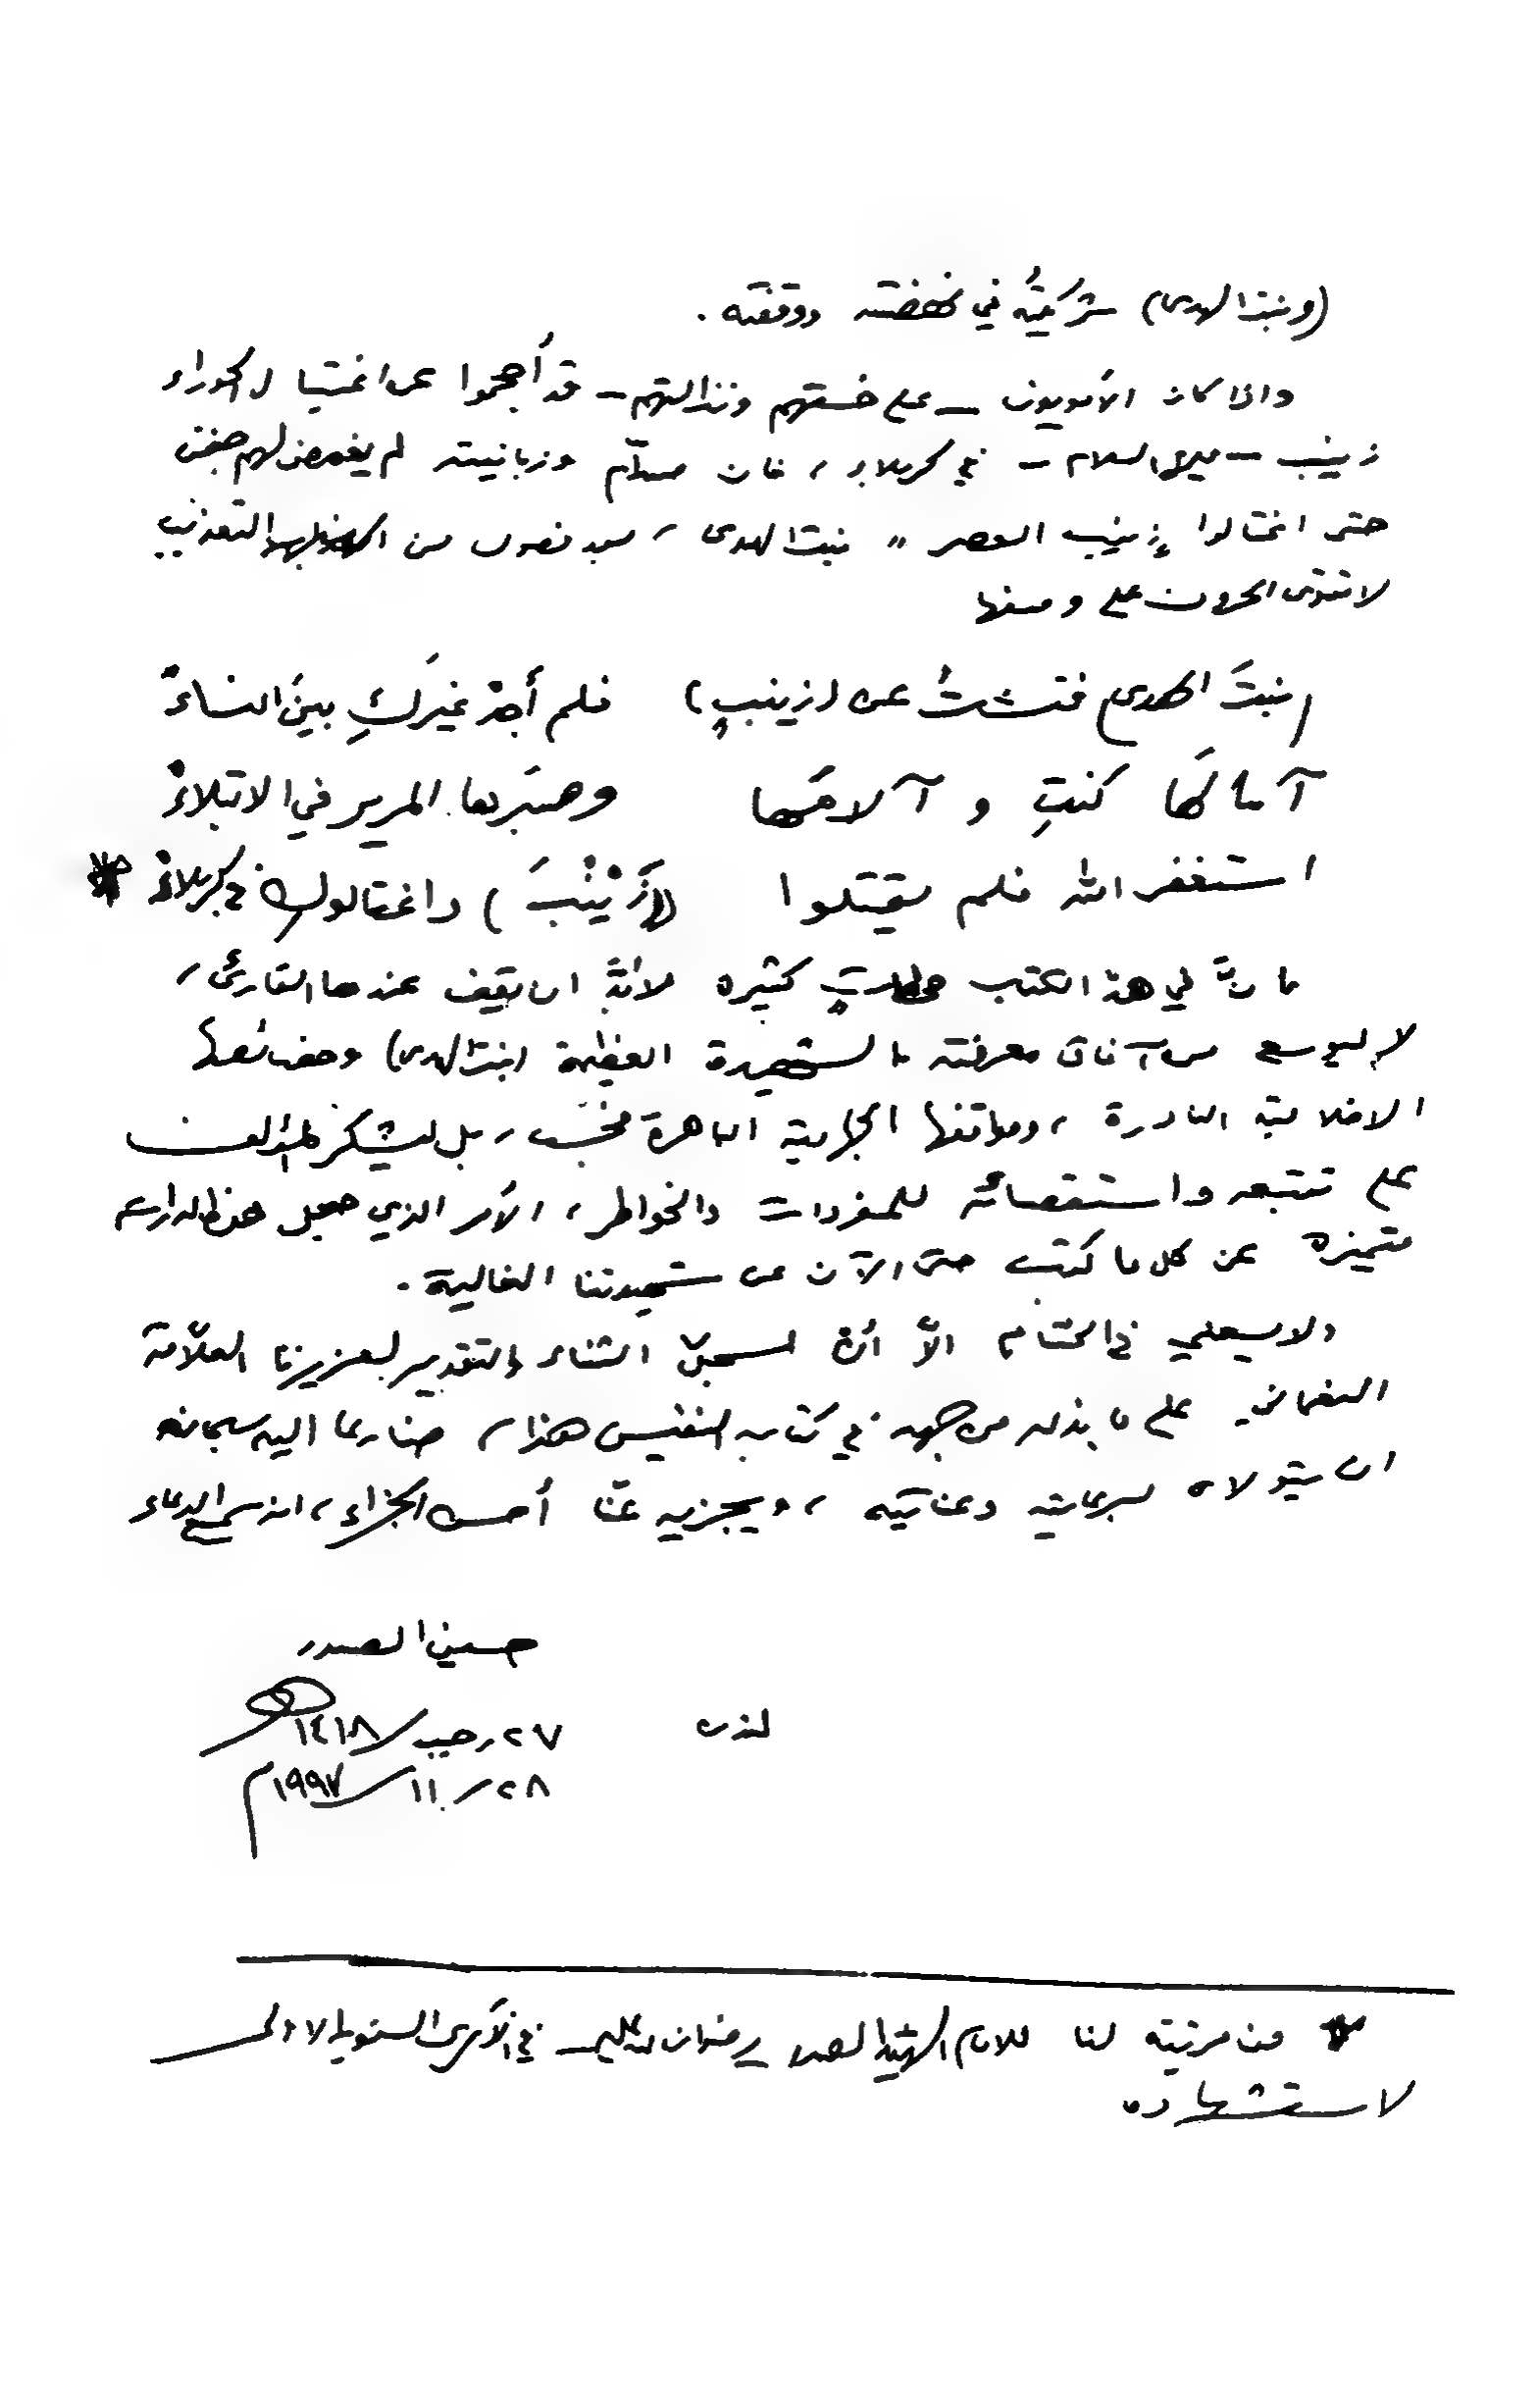 (وبنت الهدى) شريكتُه في نهضته ووقفته .
واذا كان الأمويون – على خستهم ونذالتهم – قد أحجموا عن اغتيال الحوراء
زينب – عليها السلام – في كربلاء ، فان صدّام وزبانيته لم يغمض لهم جفن
حتى اغتالوا زينب العصر " بنت الهدى ، بعد فصول من التعذيب
لا تقوى الحروف على وصفها
(بنتَ الهدى) فتشتُ عن (زينبٍ) فلم أجدْ غيرَكِ بينَ النساءْ
آمالَها كنتِ و آلامَها وصبرَها المرير في الابتلاءْ
استغفر الله فلم يقتلوا (زَيْنبَ) واغتالوكِ في كربلاءْ *
ما انَّ في هذا الكتاب محطاتٍ كثيرة لابُدَّ ان يقف عندها القارئ ،
لا ليوسع من آفاق معرفته بالشهيدة العظيمة (بنت الهدى) وخصائصها
الاخلاقية النادرة ، ومواقفها الجهادية الباهرة فحسب ، بل ليشكر للمؤلف
على تتبعه واستقصائه للمفردات والخواطر ، الأمر الذي جعل هذه الدراسة
متميزة عن كل ما كتب حتى الآن عن شهيدتنا الغالية .
ولا يسعني في الختام الاّ أنْ اسجلّ الثناء والتقدير لعزيزنا العلاّمة
النعماني على ما بذله من جهد في كتابه النفيس هذا ، ضارعا اليه سبحانه
ان يتولاه برعايته وعنايته ، ويجزيه عنّا أحسن الجزاء ، انه سميع الدعاء
حسين الصدر
لندن ٢٧ رجب / ١٤١٨ هـ
٢٨ / ١١ / ١٩٩٧ م
* من مرثية لنا للامام الشهيد الصدر رضوان الله عليه في الذكرى السنوية الاولى
لاستشهاده